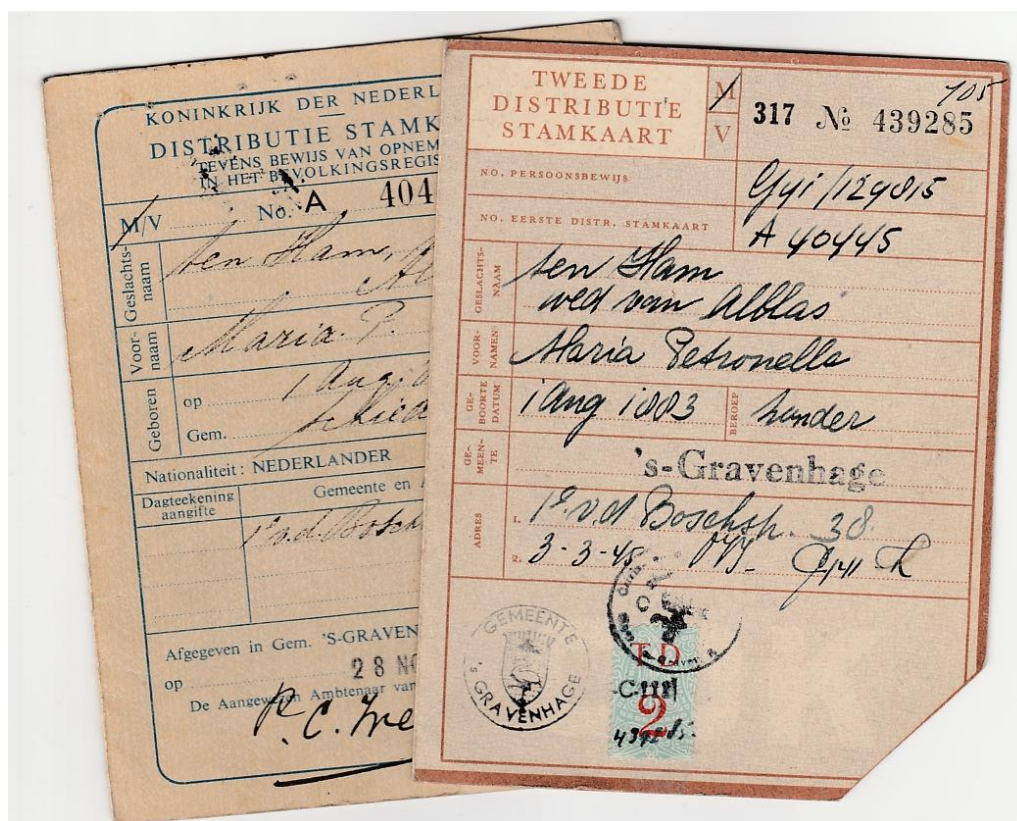 KONINKRIJK DER NEDERL
DISTRIBUTIE STAMK
TEVENS BEWIJS VAN OPNEM
IN HET BEVOLKINGSREGIS
M/V
No. A 404
Geslachts-
naam
ten Ham,
Voor-
naam
Maria P.
Geboren
op
1 Aug
Gem.
Schied
Nationaliteit: NEDERLANDER
Dagteekening
aangifte
Gemeente en
1e v.d. Bosch
Afgegeven in Gem. 'S-GRAVEN
op 28 NO
De Aangewezen Ambtenaar van
P.C.
TWEEDE
DISTRIBUTIE
STAMKAART
M
V
105
317 No 439285
NO. PERSOONSBEWIJS
129815
NO. EERSTE DISTR. STAMKAART
A 40445
GESLACHTS-
NAAM
ten Ham
wed van Alblas
VOOR-
NAMEN
Maria Petronella
GE-
BOORTE
DATUM
1 Aug 1883
BEROEP
zonder
GE-
MEEN-
TE
's-Gravenhage
ADRES
1. 1e v.d Boschstr. 38.
2. 3-3-45
GEMEENTE
's GRAVENHAGE
T D
2
439285